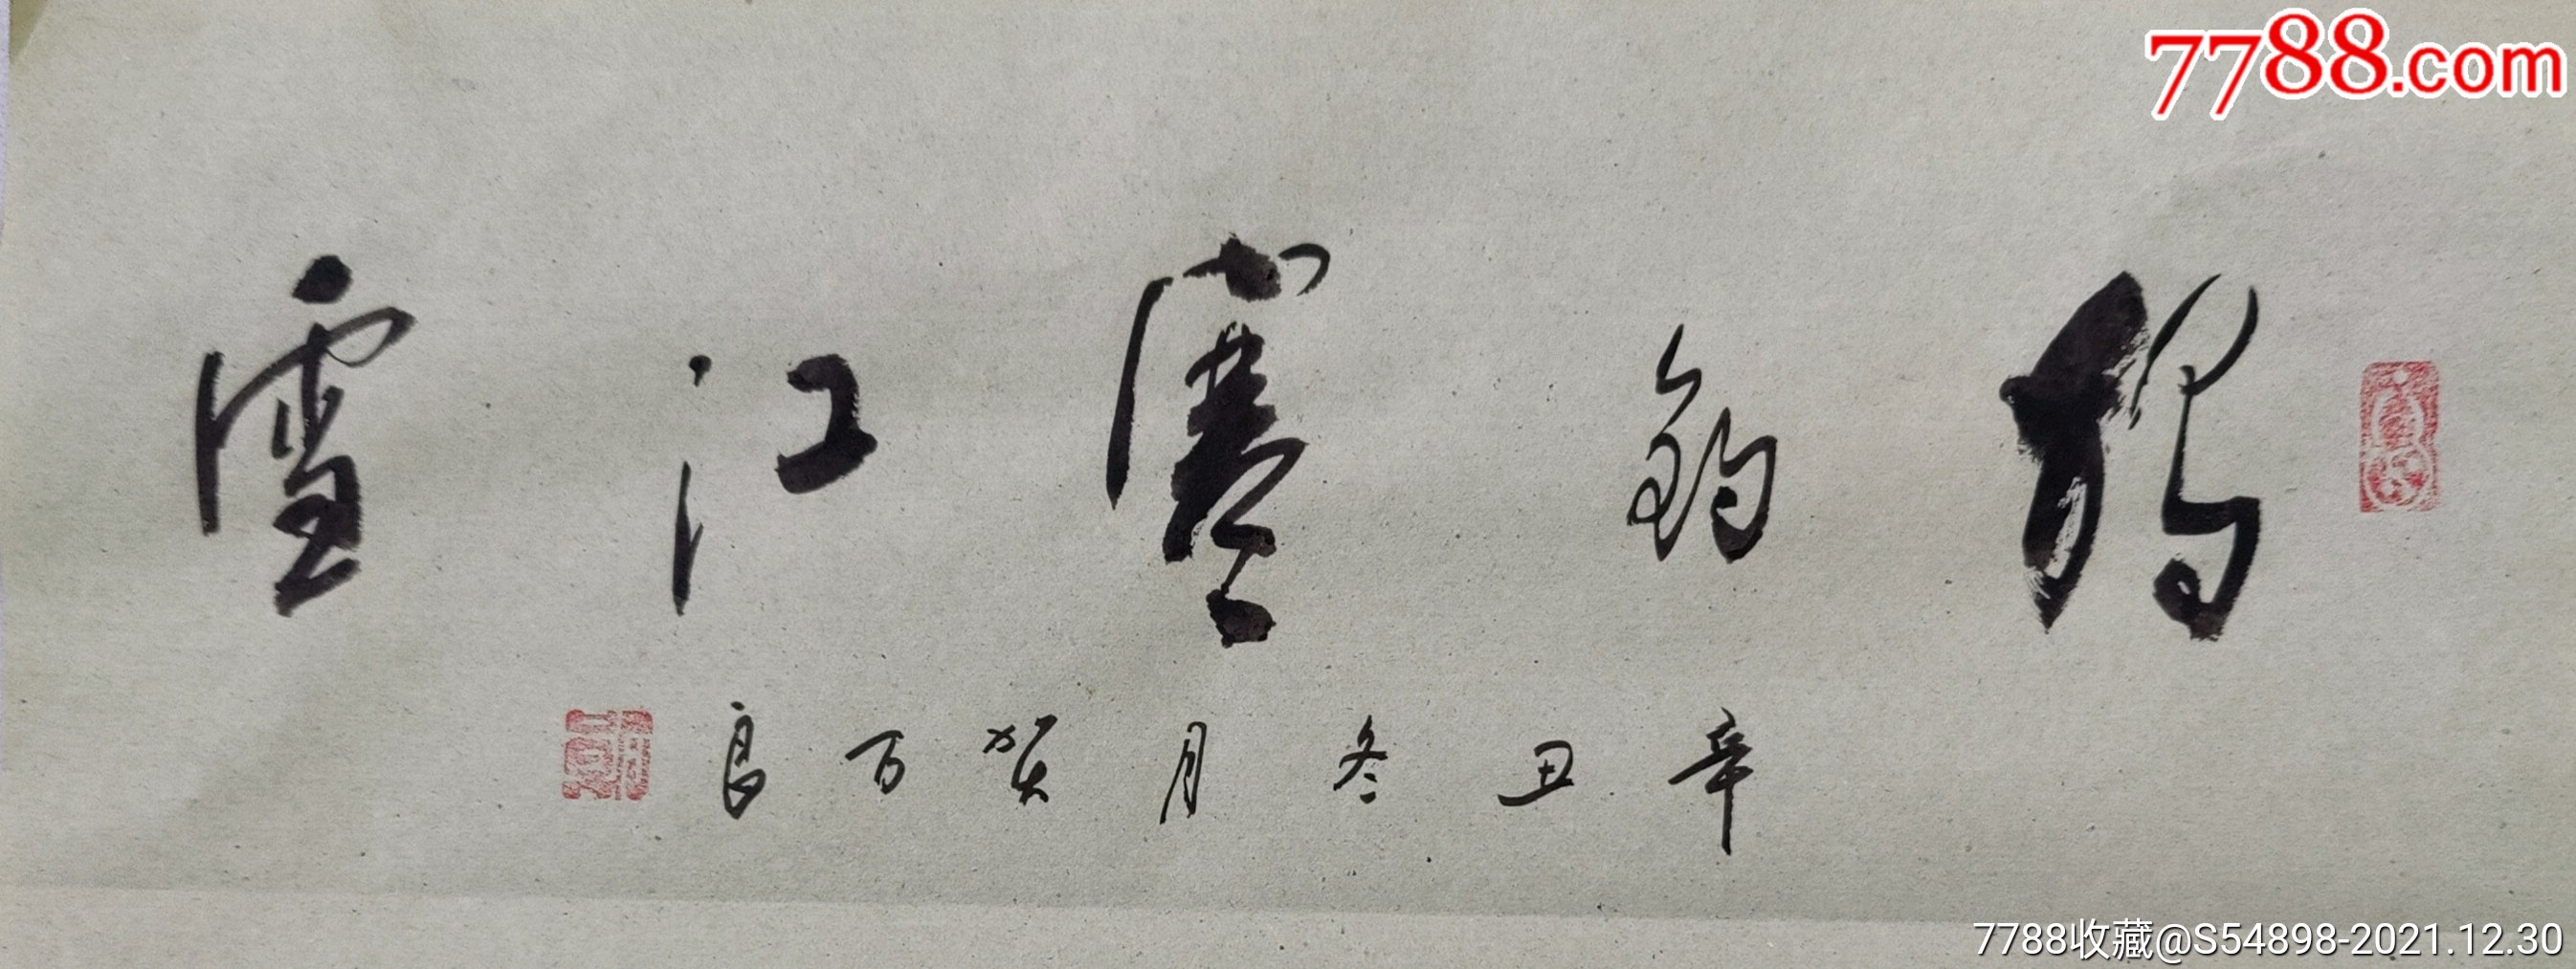 7788.com
獨釣寒江雪
辛丑冬月贺百良
7788收藏@S54898-2021.12.30